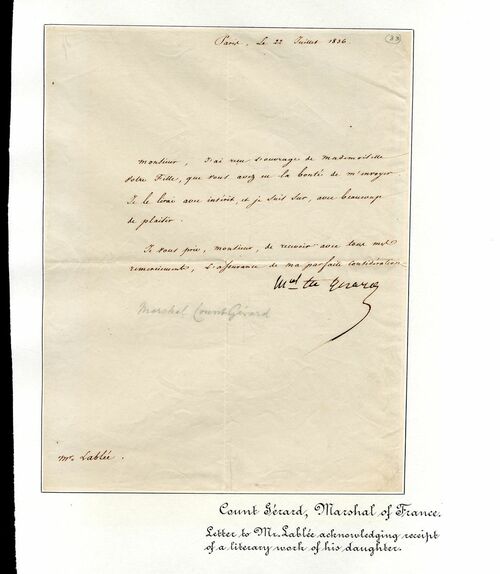 Paris, Le 22 Juillet 1836
33
Monsieur, J'ai reçu l'ouvrage de Mademoiselle
Votre Fille, que vous avez eu la bonté de m'envoyer
Je le lirai avec intérêt, et je suis sur, avec beaucoup
de plaisir.
Je vous prie, monsieur, de recevoir avec tous mes
remerciements, L'assurance de ma parfaite considération
Mal Cte Gérard
Marshal Count Gérard
Mr. Lablée.
Count Gérard, Marshal of France.
Letter to Mr. Lablée acknowledging receipt
of a literary work of his daughter.